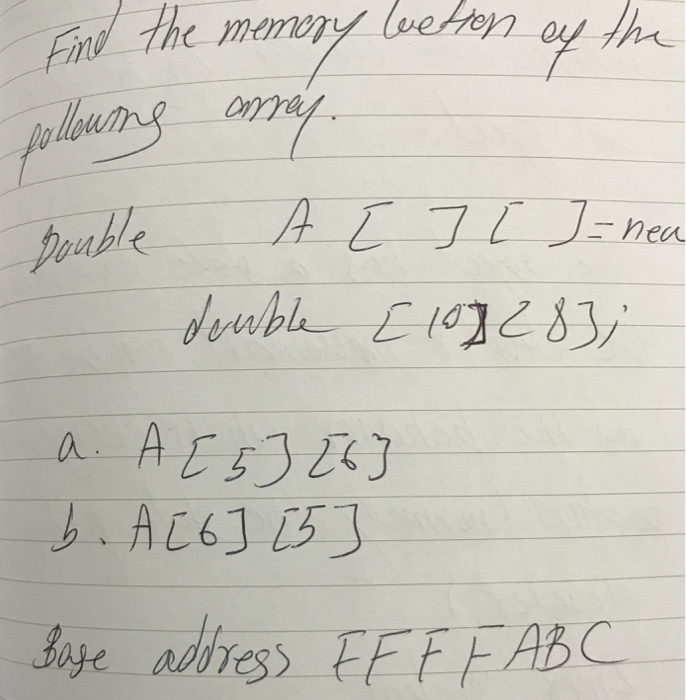 Find the memory location of the
following array.
Double A [ ] [ ] = new
double [10] [8];
a. A [5] [6]
b. A [6] [5]
Base address FFFFABC